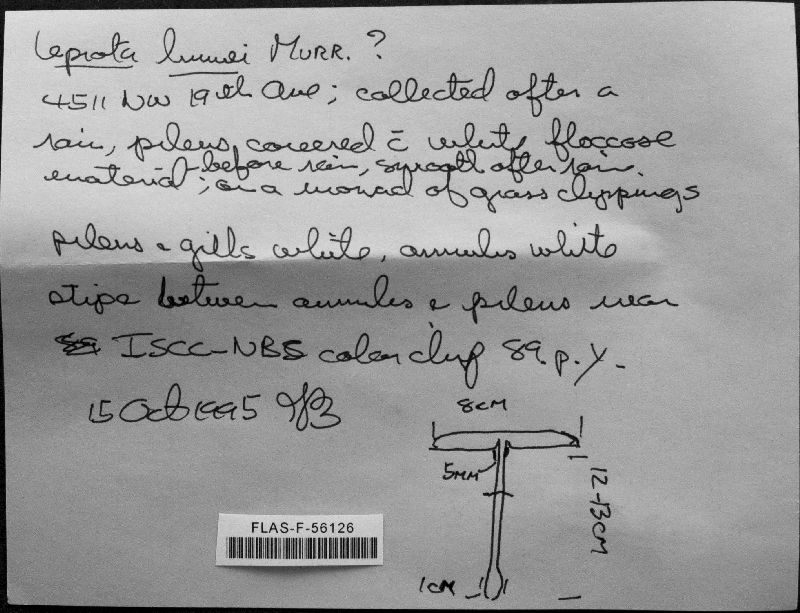 Lepiota humei MURR. ?
4511 NW 19th Ave; collected after a
rain, pileus covered c̄ white floccose
material - before rain, smooth after rain.
; on a mound of grass clippings
pileus & gills white, annulus white
stipe between annulus & pileus near
ISCC-NBS color chip 89. p. Y.
15 Oct 1995
8CM
5MM
12-13CM
1CM
FLAS-F-56126